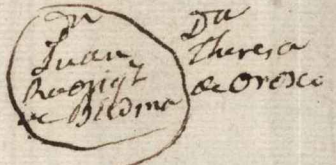 Dn
Juan
Rodrigz
de Biedma
Da
Theresa
de Orosco